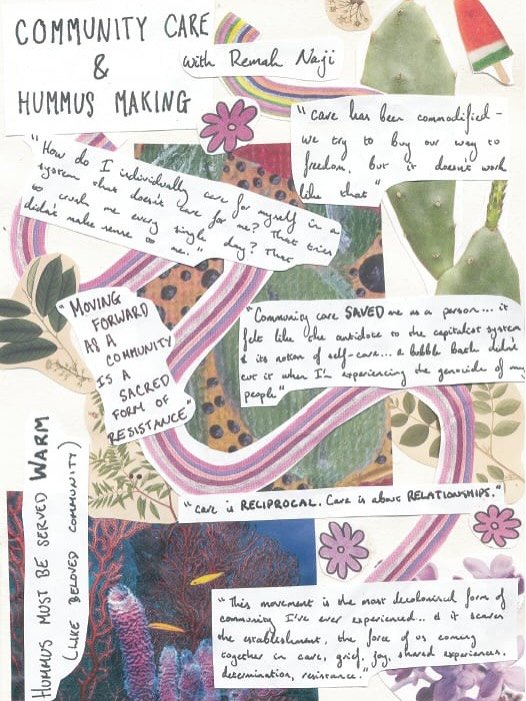 COMMUNITY CARE
&
HUMMUS MAKING
with Remah Naji
"care has been commodified –
we try to buy our way to
freedom, but it doesn't work
like that"
"How do I individually care for myself in a
system that doesn't care for me? That tries
to crush me every single day? That
didn't make sense to me."
"MOVING
FORWARD
AS A
COMMUNITY
IS A
SACRED
FORM OF
RESISTANCE"
"Community care SAVED me as a person... it
felt like the antidote to the capitalist system
& its notion of self-care... a bubble bath didn't
cut it when I'm experiencing the genocide of my
people"
"care is RECIPROCAL. Care is about RELATIONSHIPS."
HUMMUS MUST BE SERVED WARM
(LIKE BELOVED COMMUNITY)
"This movement is the most decolonised form of
community I've ever experienced... & it scares
the establishment, the force of us coming
together in care, grief, joy, shared experiences,
determination, resistance."